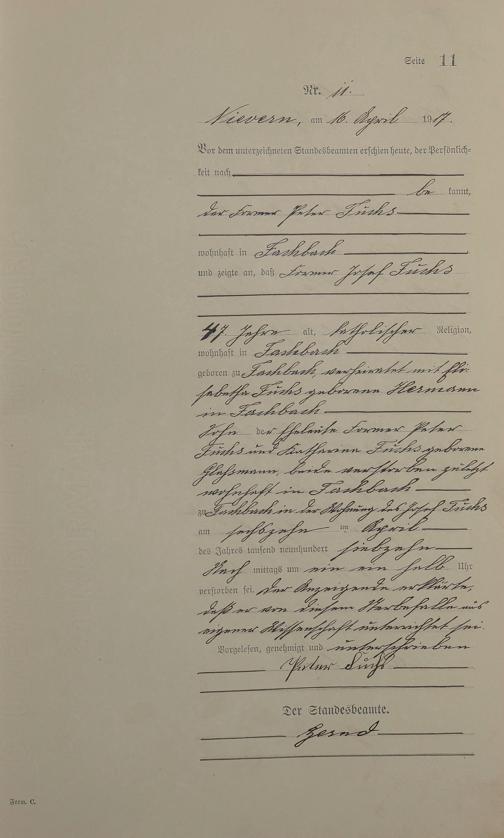 Seite 11
Nr. 11.
Nievern, am 16. April 1917.
Vor dem unterzeichneten Standesbeamten erschien heute, der Persönlich-
keit nach
be kannt,
der Former Peter Fuchs
wohnhaft in Fachbach
und zeigte an, daß Former Josef Fuchs
47 Jahre alt, katholischer Religion,
wohnhaft in Fachbach
geboren zu Fachbach, verheiratet mit Eli-
sabetha Fuchs geborene Hermann
in Fachbach
Sohn der Eheleute Former Peter
Fuchs und Katharina Fuchs geborene
beide verstorben zuletzt
wohnhaft in Fachbach
zu Fachbach in der Wohnung des Josef Fuchs
am sechszehn im April
des Jahres tausend neunhundert siebzehn
Nach mittags um ein ein halb Uhr
verstorben sei. Der Anzeigende erklärte,
daß er von diesem Sterbefalle aus
eigener Wissenschaft unterrichtet sei.
Vorgelesen, genehmigt und unterschrieben
Peter Fuchs
Der Standesbeamte.
Form. C.